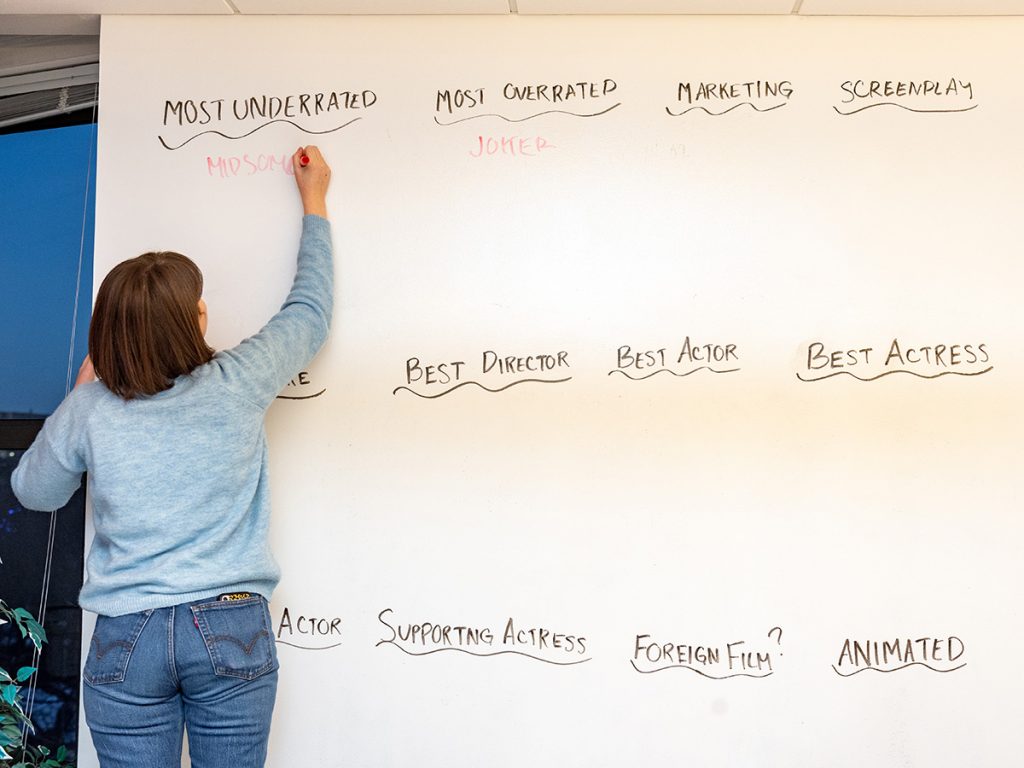 MOST UNDERRATED
MOST OVERRATED
MARKETING
SCREENPLAY
MIDSOM
JOKER
BEST DIRECTOR
BEST ACTOR
BEST ACTRESS
ACTOR
SUPPORTNG ACTRESS
FOREIGN FILM?
ANIMATED